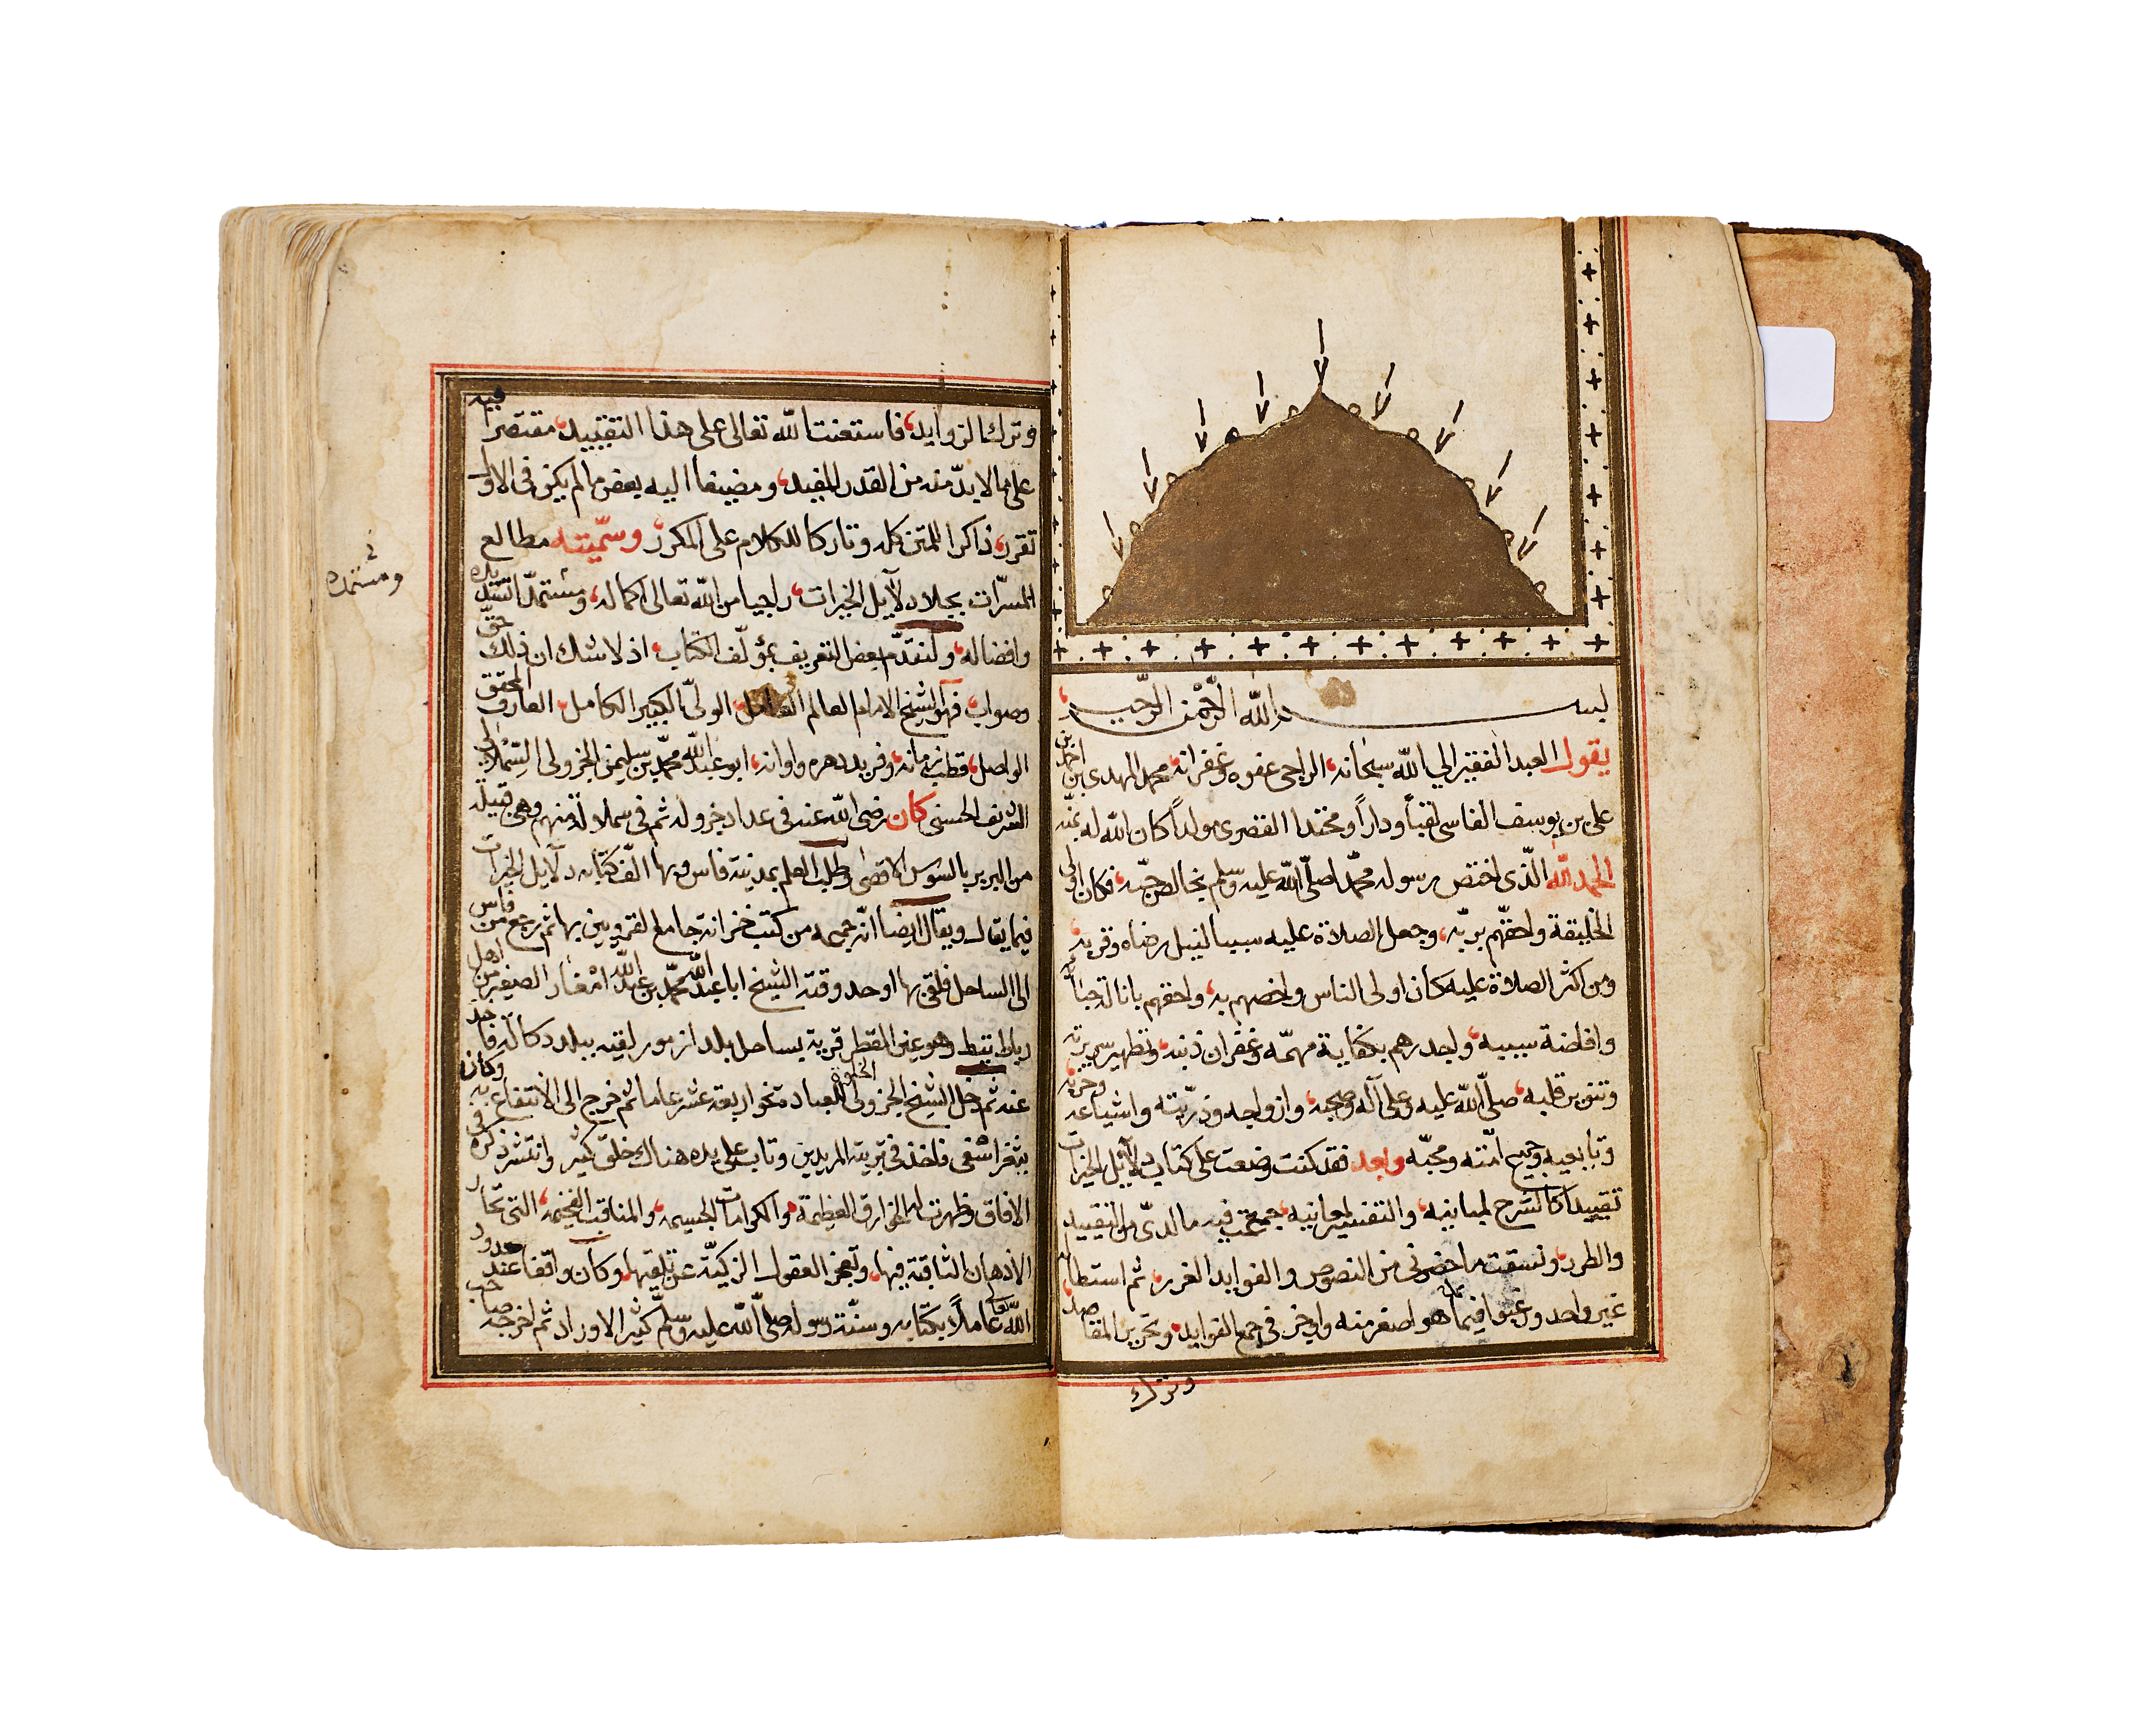 بسم الله الرحمن الرحيم
يقول العبد الفقير الى الله سبحانه، الراجى عفوه وغفرانه محمد المهدى بن احمد بن
على بن يوسف الفاسى لقباً وداراً ومحتدا القصرى مولداً كان الله له بمنه
الحمد لله الذى اختص رسوله محمداً صلى الله عليه وسلم بخالص حبه، فكان اولى
الخليقة واحقهم بربه، وجعل الصلاة عليه سببا لنيل رضاه وقربه
ومن اكثر الصلاة عليه كان اولى الناس واخصهم به، واحقهم بانالة حبائه
وافاضة سيبه، واجدرهم بكفاية مهمه وغفران ذنبه، وتطهير سريرته
وتنوير قلبه، صلى الله عليه وعلى آله وصحبه، وازواجه وذريته واشياعه وحزبه
وتابعيه وجميع امته ومحبه وبعد فقد كنت وضعت على كتاب دلآيل الخيرات
تقييدا كالشرح لمبانيه، والتفسير لمعانيه، جمعت فيه ما لدى من التقييد
والطرر، ونسقت ما حضرنى من النصوص والفوايد الغرر، ثم استطاله
غير واحد ورغبوا فيما هو اصغر منه واوخر فى جمع الفوايد، وتحرير المقاصد
وترك
وترك الزوايد، فاستعنت الله تعالى على هذا التقييد، مقتصرا فيه
على ما لا بد منه من القدر المفيد، ومضيفا اليه بعض ما لم يكن فى الاول
تقرر، ذاكرا للمتن كله وتاركا للكلام على المكرر، وسميته مطالع
المسرات بجلاء دلآيل الخيرات، راجيا من الله تعالى اكماله، ومستمدا تسديده
ومستمده
وافضاله، ولنقدم بعض التعريف بمؤلف الكتاب، اذ لا شك ان ذلك حق
وصواب، فهو الشيخ الامام العالم العامل، الولى الكبير الكامل، العارف المحقق
الواصل، قطب زمانه، وفريد دهره واوانه، ابو عبد الله محمد بن سليمن الجزولى السملالى
الشريف الحسنى كان رضى الله عنه فى عداد جزولة ثم فى سملالة منهم وهى قبيلة
من البربر بالسوس الاقصى وطلب العلم بمدينة فاس وبها الف كتابه دلآيل الخيرات
فيما يقال ويقال ايضا انه جمعه من كتب خزانة جامع القرويين بها ثم رجع من فاس
الى الساحل فلقى بها اوحد وقته الشيخ ابا عبد الله محمد بن عبد الله امغار الصغير من اهل
رباط تيط وهو عين الفطر قرية بساحل بلد ازمور لقيه ببلد دكالة فاخذ
عنه ثم دخل الشيخ الجزولى الخلوة للعبادة نحو اربعة عشر عاما ثم خرج الى الانتفاع به وكان
بثغر اسفى فاخذ فى تربية المريدين وتاب على يده هناك خلق كثير وانتشر ذكره فى
الافاق وظهرت له الخوارق العظيمة، والكرامات الجسيمه، والمناقب الفخيمه، التى تحار
الاذهان الثاقبة فيها، وتعجز العقول الزكية عن تلقيها، وكان واقفا عند حدود
الله تعالى عاملا بكتابه وسنة رسوله صلى الله عليه وسلم كثير الاوراد ثم اخرجه صاحب